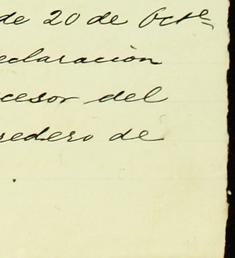 de 20 de Octe
eclaración
cesor del
redero de